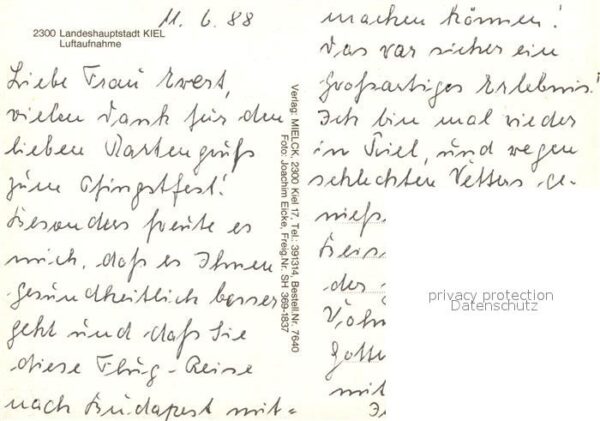 11. 6. 88
2300 Landeshauptstadt KIEL
Luftaufnahme
Liebe Frau Evert,
vielen Dank für den
lieben Kartengruß
zum Pfingstfest!
Besonders freute es
mich, daß es Ihnen
gesundheitlich besser
geht und daß Sie
diese Flug-Reise
nach Budapest mit-
machen können!
Das war sicher ein
großartiges Erlebnis!
Ich bin mal wieder
in Kiel, und wegen
schlechten Wetters ge-
nieß
des
mit
Verlag: MIELCK, 2300 Kiel 17, Tel.: 391314, Bestell Nr. 7640
Foto: Joachim Eicke, Freig.Nr. SH 369-1837
privacy protection
Datenschutz